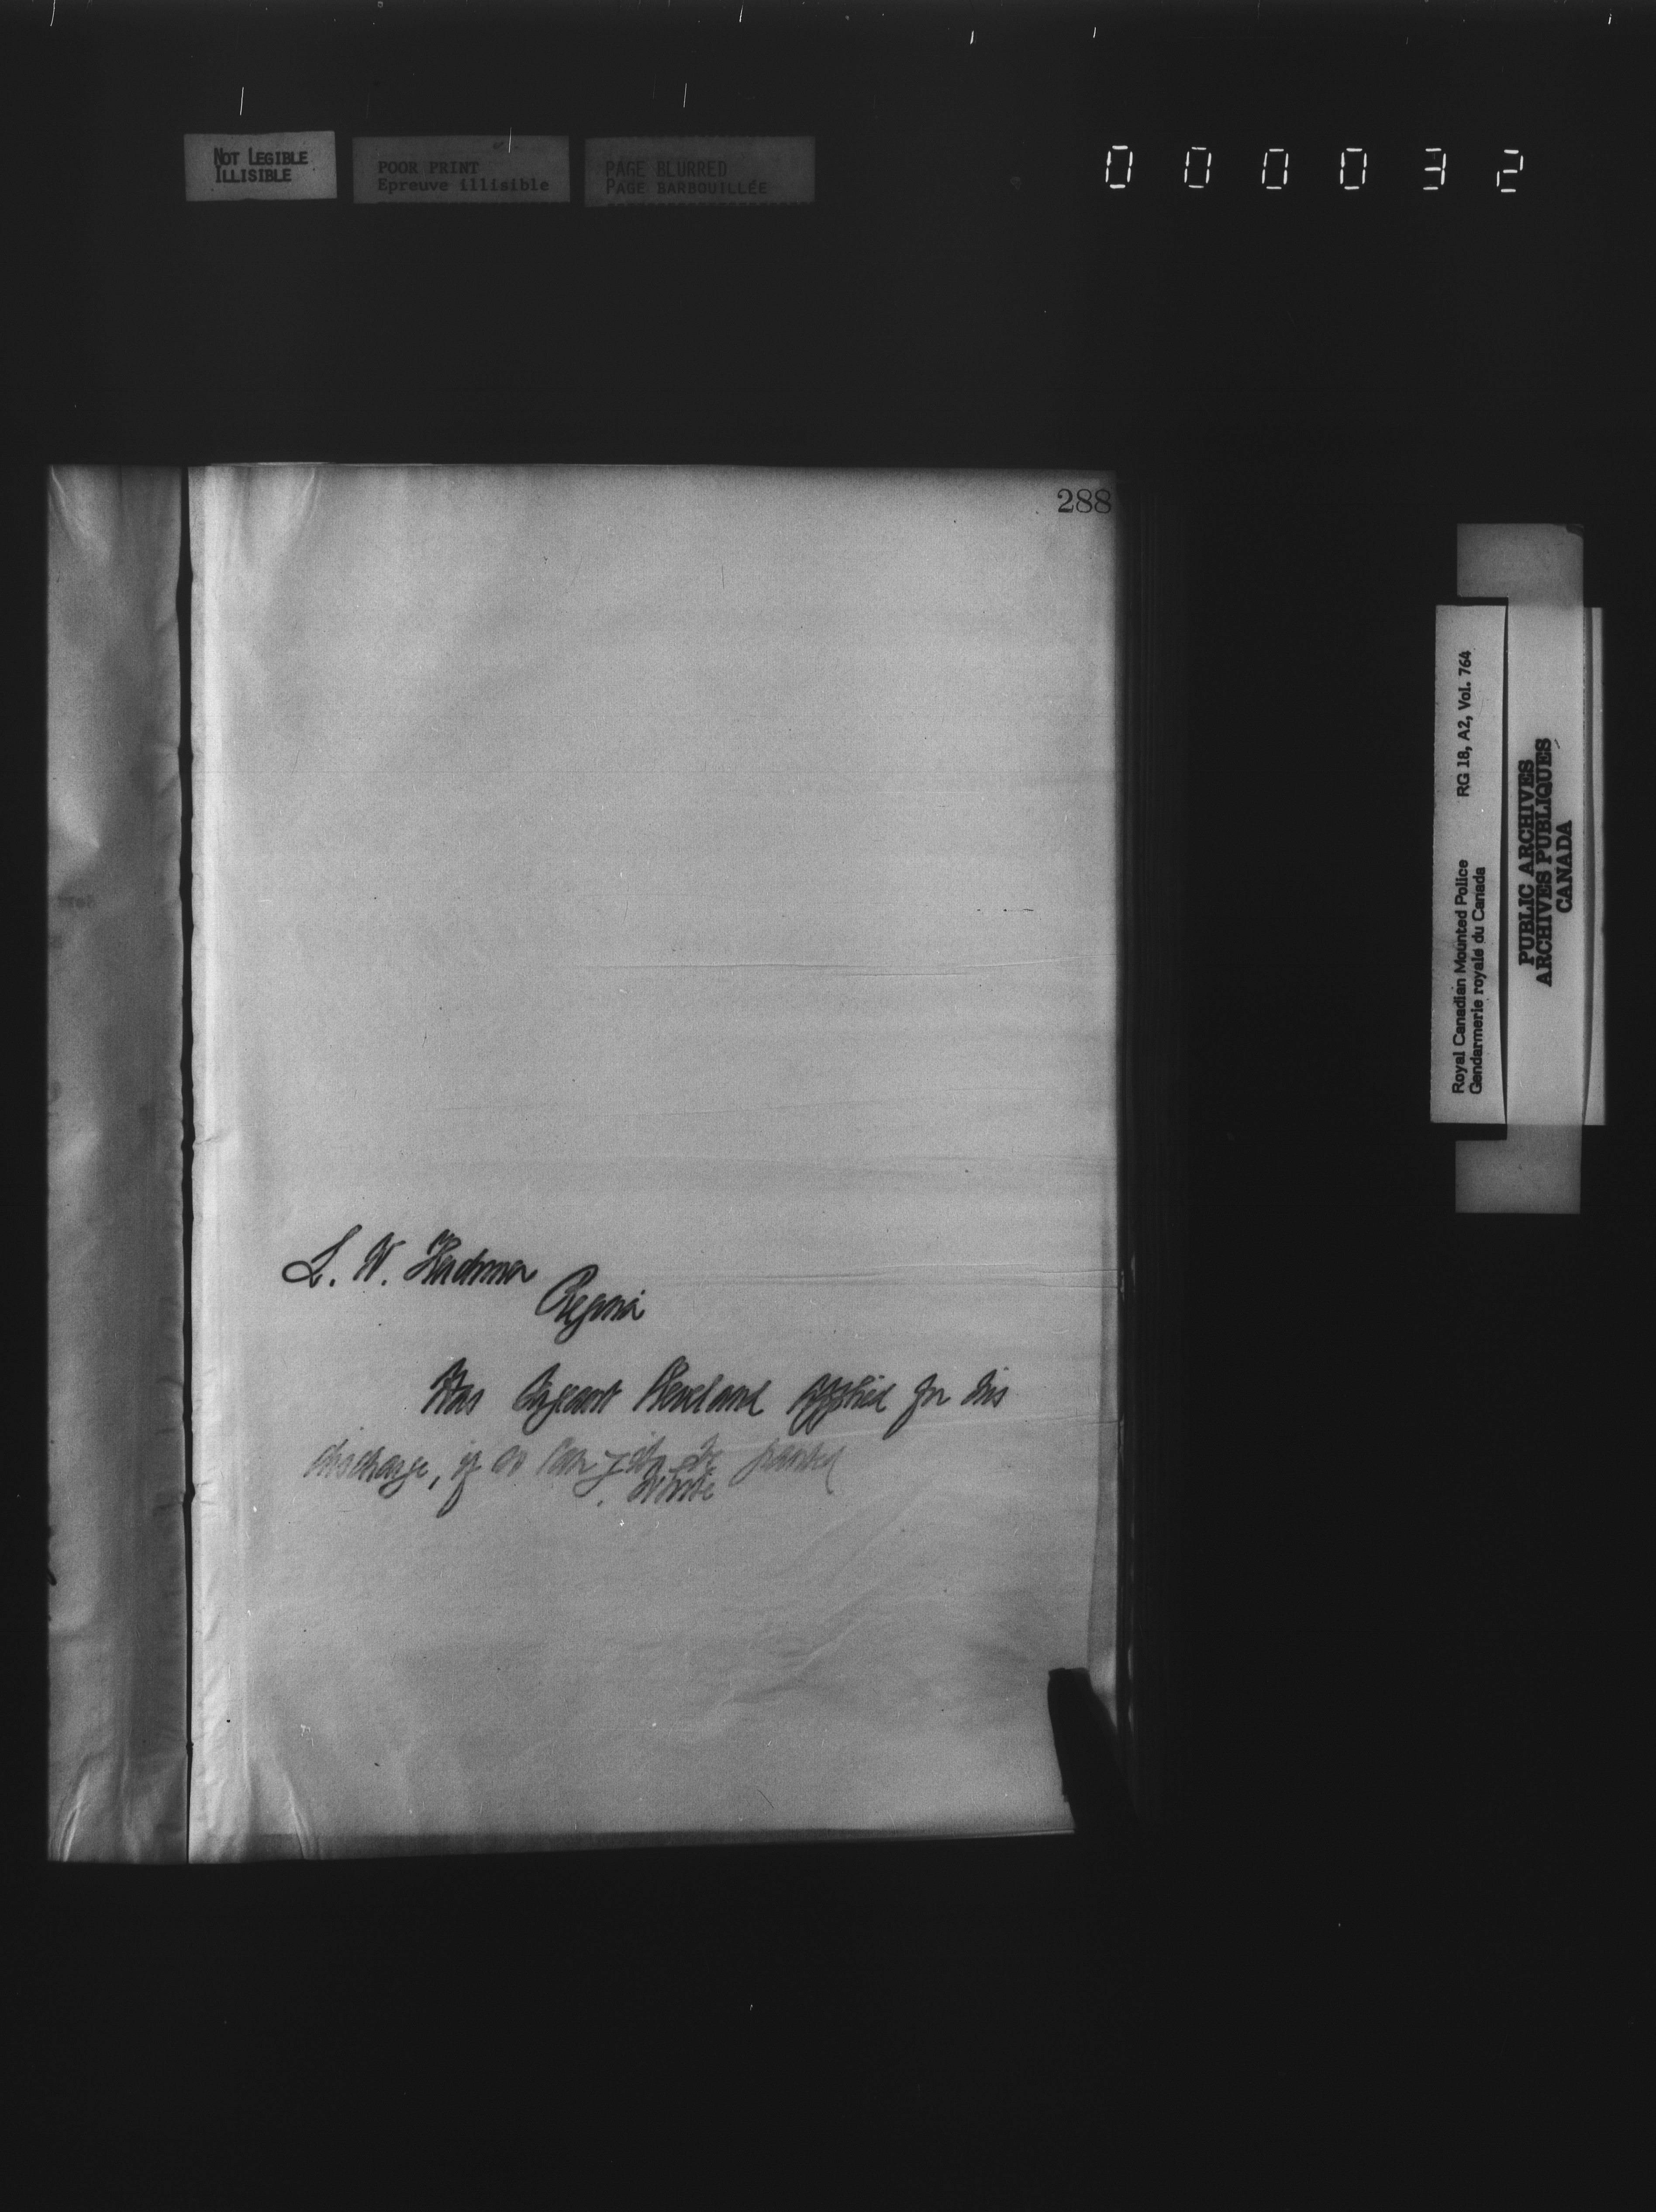 NOT LEGIBLE
ILLISIBLE
POOR PRINT
Epreuve illisible
PAGE BLURRED
PAGE BARBOUILLÉE
000032
288
L. W. Herchmer
Regina
Has Sergeant applied for his
discharge, if so can it be granted
White
Royal Canadian Mounted Police RG 18, A2, Vol. 764
Gendarmerie royale du Canada
PUBLIC ARCHIVES
ARCHIVES PUBLIQUES
CANADA